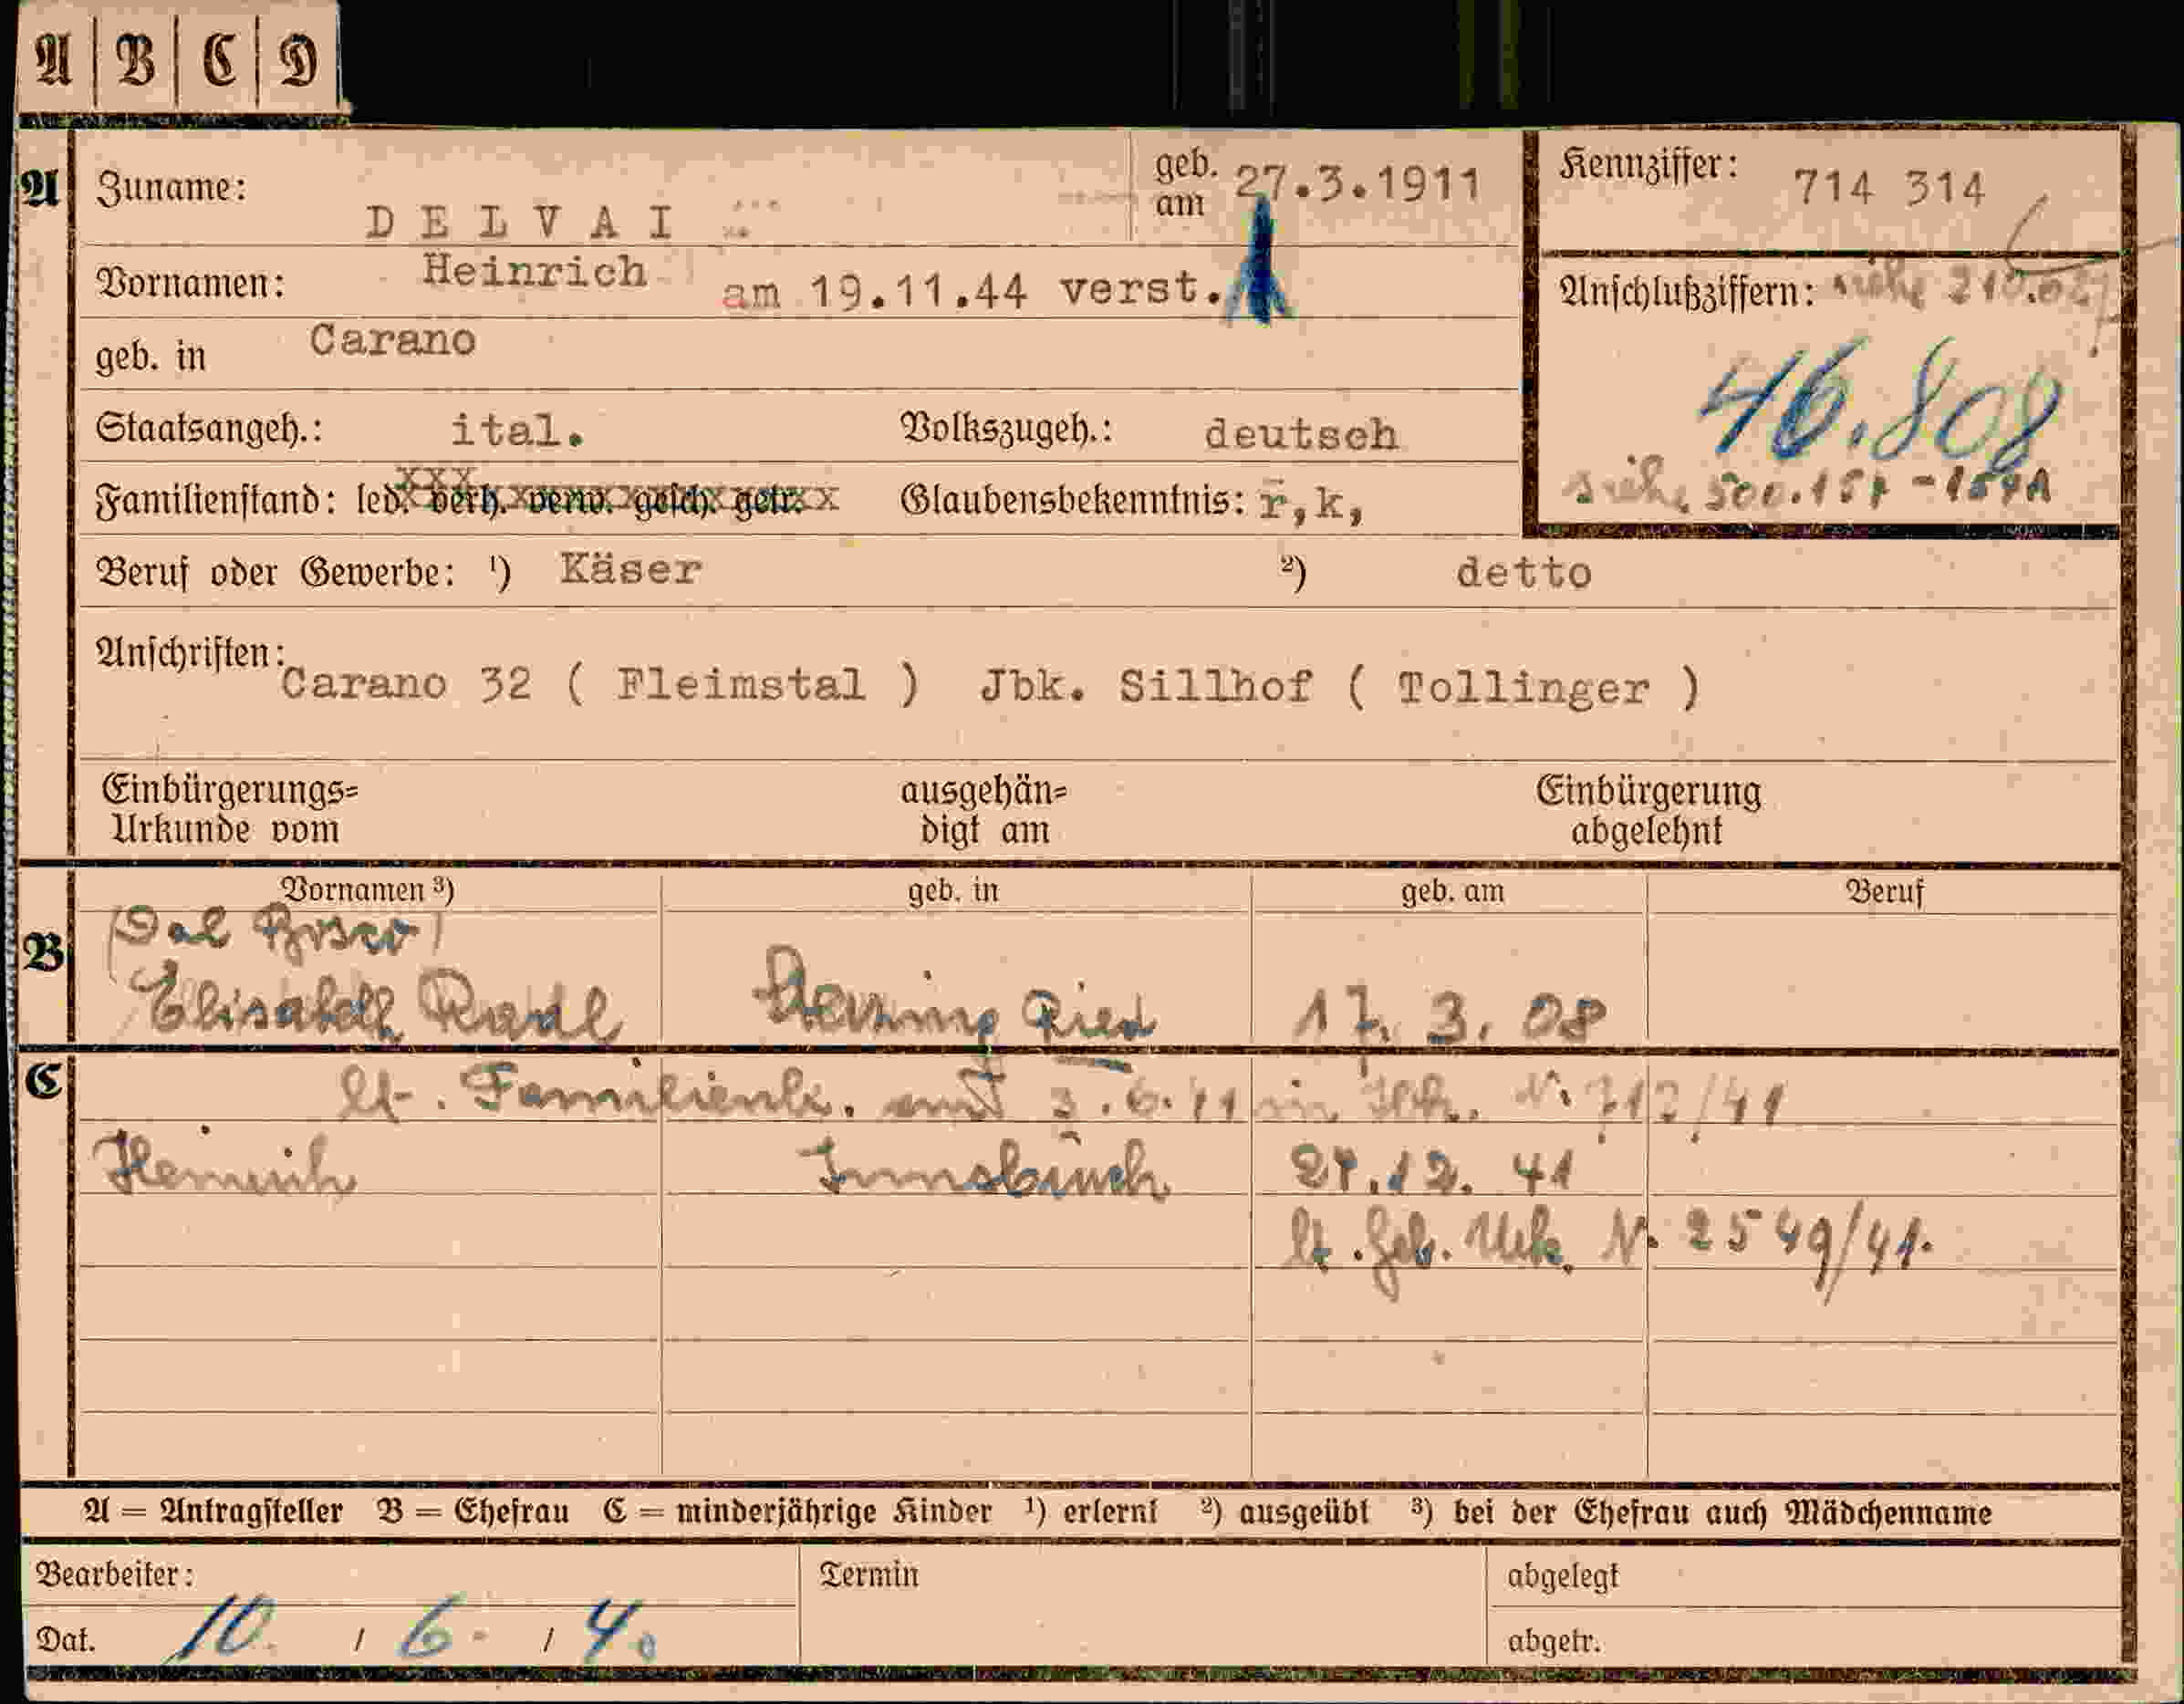 A | B | C | D
A Zuname: DELVAI geb. am 27.3.1911 Kennziffer: 714 314
Vornamen: Heinrich am 19.11.44 verst. Anschlußziffern: siehe
geb. in Carano
46.808
Staatsangeh.: ital. Volkszugeh.: deutsch
siehe 500.157 - 157A
Familienstand: led. verh. verw. gesch. getr. Glaubensbekenntnis: r,k,
Beruf oder Gewerbe: ¹) Käser ²) detto
Anschriften: Carano 32 ( Fleimstal ) Jbk. Sillhof ( Tollinger )
Einbürgerungs= ausgehän= Einbürgerung
Urkunde vom digt am abgelehnt
Vornamen ³) geb. in geb. am Beruf
(Dal Bosco)
B Elisabeth Ried 17. 3. 08
C lt. Familienb. 3.6.41 in Jbk. Nr. 712/41
Heinrich Innsbruck 27.12. 41
lt. Geb. Urk. Nr. 2549/41.
A = Antragsteller B = Ehefrau C = minderjährige Kinder ¹) erlernt ²) ausgeübt ³) bei der Ehefrau auch Mädchenname
Bearbeiter: Termin abgelegt
Dat. 10. / 6. / 40 abgetr.